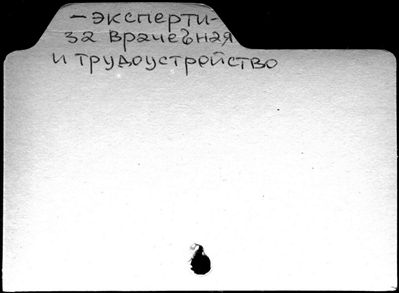 – экспертиза-
за врачебная
и трудоустройство